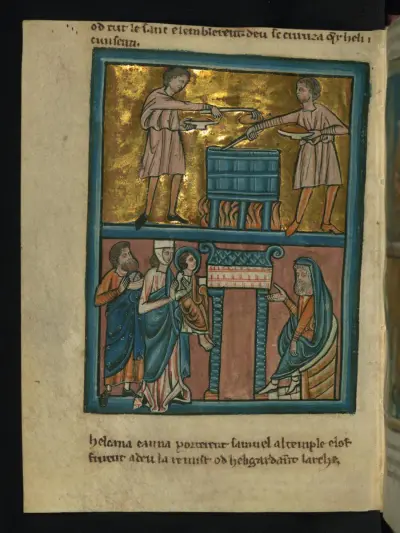 od cut le sanc e lemblerent deu se curuza qr heli i
cunsenti.
helcana e anna porterent samuel al temple e lof
frirent a deu la mist od heli gardant larche.